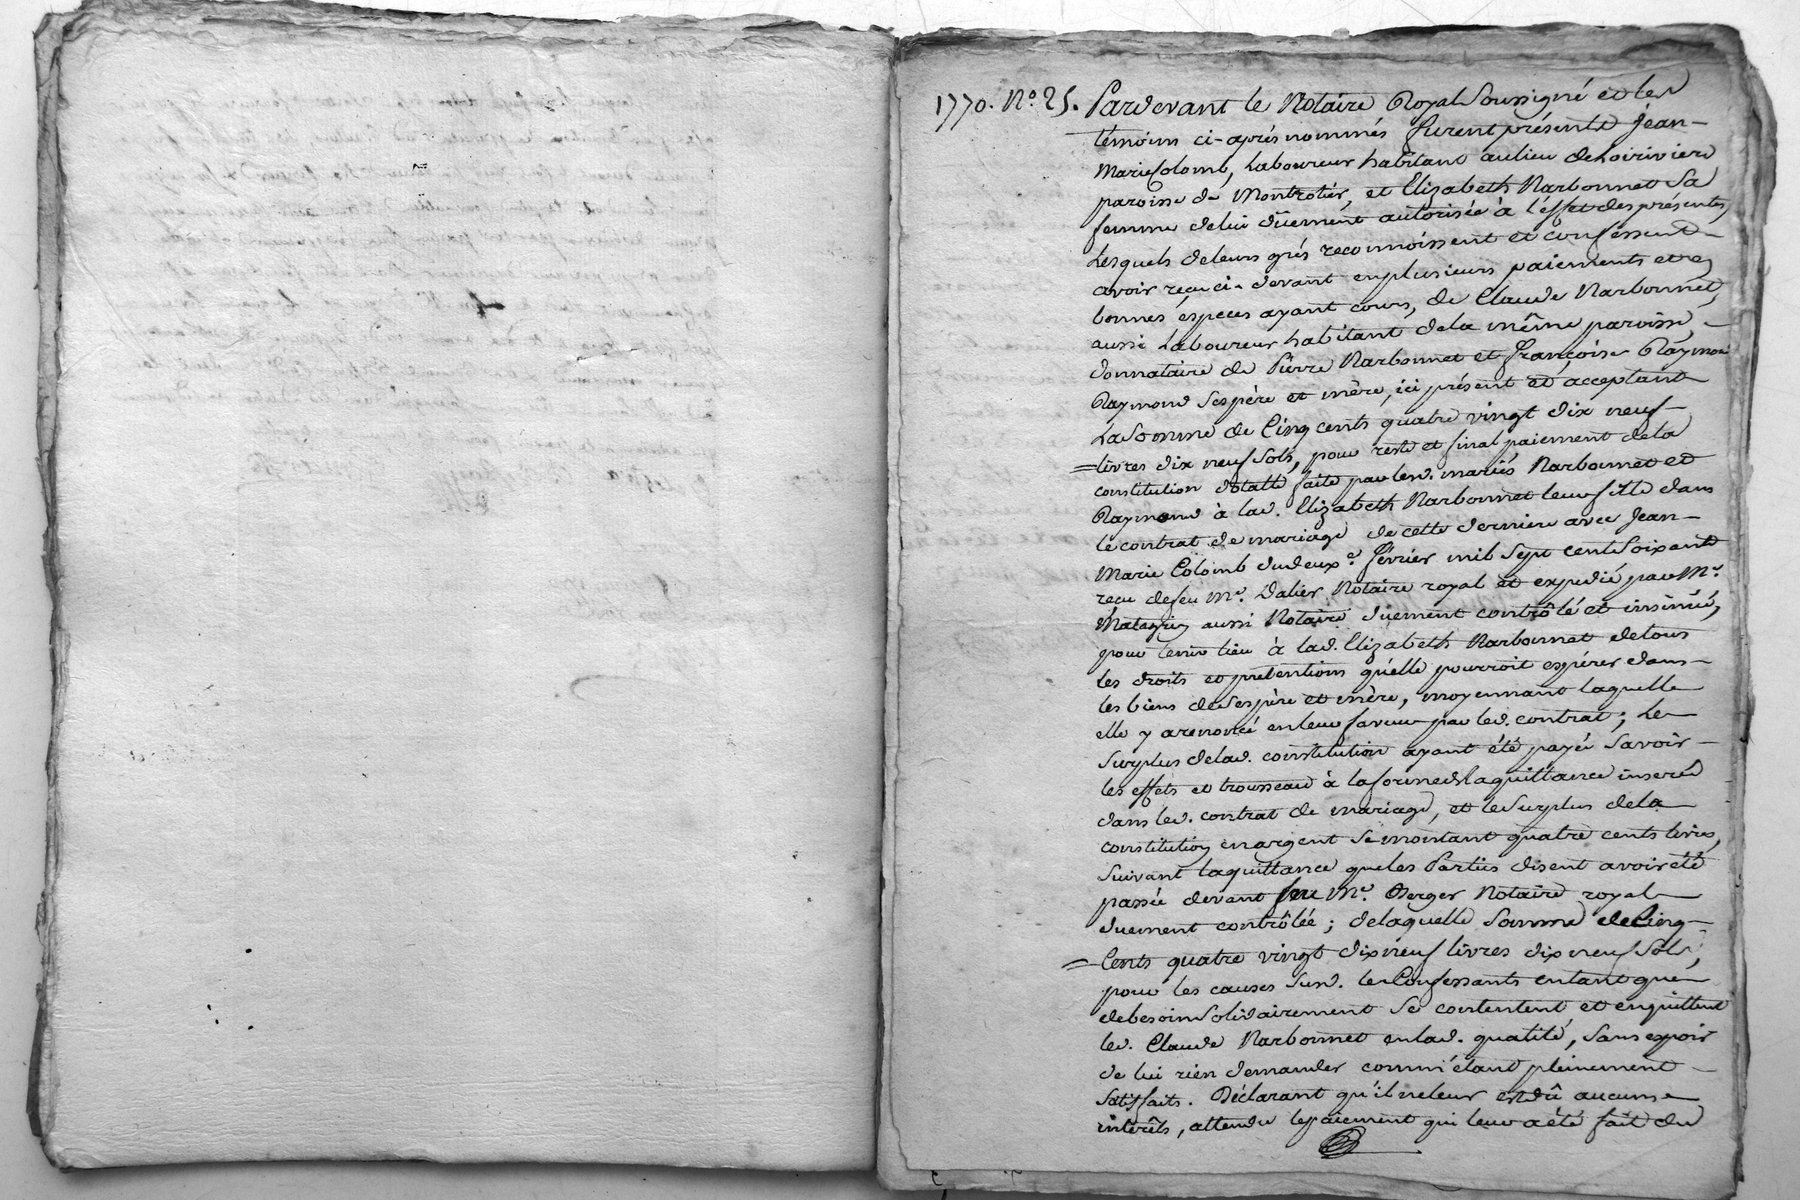 1770. N.o 25. Pardevant le Notaire Royal Soussigné et les
témoins ci-après nommés furent présents Jean-
Marie Colomb, Laboureur habitant au lieu de
paroisse de Montrotier, et Elizabeth Narbonnet Sa
femme de lui düement autorisée à l'effet des présentes,
Lesquels de leurs grés reconnoissent et confessent
avoir reçu ci-devant en plusieurs paiements et en
bonnes espèces ayant cours, de Claude Narbonnet,
aussi Laboureur habitant de la même paroisse,
donnataire de Pierre Narbonnet et françoise Raymon
Raymond Ses père et mère, ici présent et acceptant
La Somme de Cinq cents quatre vingt dix neuf
livres dix neuf Sols, pour reste et final paiement de la
constitution dotalle faite par lesd. mariés Narbonnet et
Raymond à lad. Elizabeth Narbonnet leur fille dans
le contrat de mariage de cette derniere avec Jean-
Marie Colomb du deux.e février mil Sept cent Soixante
reçu de feu M.e Dalier Notaire royal et expédié par M.e
Matagrin aussi Notaire düement contrôlé et insinué,
pour tenir lieu à lad. Elizabeth Narbonnet de tous
les droits et prétentions qu'elle pourroit espérer dans
les biens de Ses père et mère, moyennant laquelle
elle y a renoncé en leur faveur par led. contrat; Le
Surplus de lad. constitution ayant été payée Savoir
les effets et trousseau à la forme de la quittance inserée
dans led. contrat de mariage, et le Surplus de la
constitution en argent Se montant quatre cents livres,
Suivant la quittance que les Parties disent avoir été
passée devant feu M.e Berger Notaire royal
duement contrôlée; de laquelle Somme de Cinq
Cents quatre vingt dix neuf livres dix neuf Sols,
pour les causes Susd. les Confessants entant que
de besoin Solidairement Se contentent et en quittent
led. Claude Narbonnet en lad. qualité, Sans espoir
de lui rien demander comm'étant pleinement
Satisfaits. Déclarant qu'il ne leur est dû aucuns
intérêts, attendu le paiement qui leur a été fait du